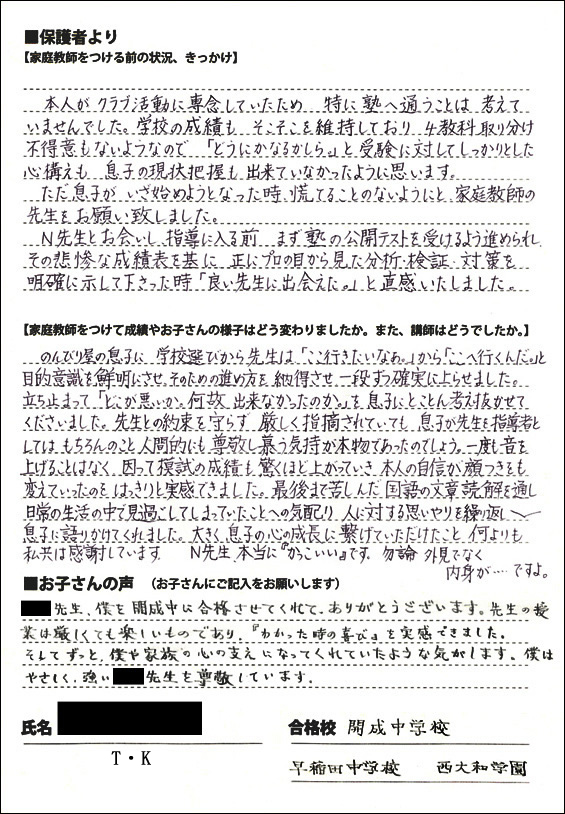 ■保護者より
【家庭教師をつける前の状況、きっかけ】
本人が クラブ活動に専念していたため 特に塾へ通うことは 考えて
いませんでした。学校の成績も そこそこを維持しており 4教科取り分け
不得意もないようなので 「どうにかなるかしら。」と受験に対してしっかりとした
心構えも 息子の現状把握も出来ていなかったように思います。
ただ息子が いざ始めようとなった時、慌てることのないようにと、家庭教師の
先生をお願い致しました。
N先生とお会いし、指導に入る前 まず塾の公開テストを受けるよう進められ、
その悲惨な成績表を基に 正にプロの目から見た分析・検証・対策を
明確に示して下さった時「良い先生に出会えた。」と直感いたしました。
【家庭教師をつけて成績やお子さんの様子はどう変わりましたか。また、講師はどうでしたか。】
のんびり屋の息子に 学校選びから先生は「ここ行きたいなあ。」から「ここへ行くんだ。」と
目的意識を鮮明にさせ、そのための進め方を 納得させ 一段ずつ確実に上らせました。
立ち止まって「どこが悪いか。何故 出来なかったのか。」を息子にとことん考え抜かせて
くださいました。先生との約束を守らず 厳しく指摘されていても 息子が先生を指導者と
しては もちろんのこと人間的にも尊敬し慕う気持が本物であったのでしょう。一度も音を
上げることはなく、因って模試の成績も驚くほど上がっていき 本人の自信が顔つきをも
変えていったのを はっきりと実感できました。最後まで苦しんだ 国語の文章読解を通し
日常の生活の中で見過ごしてしまっていたことへの気配り、人に対する思いやりを繰り返し
息子に語りかけてくれました。大きく息子の心の成長に繋げていただけたこと 何よりも
私共は感謝しています。 N先生、本当に『かっこいい』です。勿論 外見でなく
内身が…ですよ。
■お子さんの声 (お子さんにご記入をお願いします)
先生、僕を開成中に合格させてくれて、ありがとうございます。先生の授
業は厳しくても楽しいものであり、『わかった時の喜び』を実感できました。
そしてずっと、僕や家族の心の支えになってくれていたような気がします。僕は
やさしく、強い 先生を尊敬しています。
氏名
T・K
合格校 開成中学校
早稲田中学校 西大和学園